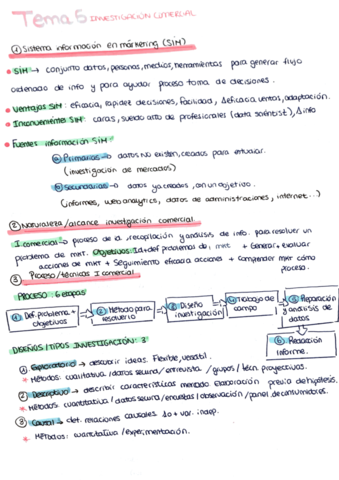 Tema 6 INVESTIGACIÓN COMERCIAL
① Sistema información en márketing (SIM)
• SIM → conjunto datos, personas, medios, herramientas para generar flujo
ordenado de info y para ayudar proceso toma de decisiones.
• Ventajas SIM: eficacia, rapidez decisiones, facilidad, Δ eficacia ventas, adaptación.
• Inconvenientes SIM: caras, sueldo alto de profesionales (data scientist), Δ info
• Fuentes información SIM:
① Primarias → datos NO existen, creados para estudiar.
(investigación de mercados)
② Secundarias → datos ya creados, en un objetivo.
(informes, web analytics, datos de administraciones, internet...)
② Naturaleza/alcance investigación comercial.
I comercial → proceso de recopilación y análisis de info. para resolver un
problema de mkt. Objetivos: Id + def problemas de mkt + Generar + evaluar
acciones de mkt + Seguimiento eficacia acciones + comprender mkt cómo
proceso.
③ Proceso/técnicas I comercial
PROCESO: 6 etapas
① Def. problema + objetivos
② Método para resolverlo
③ Diseño investigación
④ Trabajo de campo
⑤ Preparación y análisis de datos
⑥ Redacción informe.
DISEÑOS/TIPOS INVESTIGACIÓN: 3
① Exploratorio → descubrir ideas. Flexible, versátil.
* Métodos: cualitativa/datos secund/entrevista/grupos/técn. proyectivas.
② Descriptivo → describir características mercado elaboración previa de hipótesis.
* Métodos: cuantitativa/datos secund/encuestas/observación/panel de consumidores.
③ Causal → det. relaciones causales Δ0 + var. indep.
* Métodos: cuantitativa/experimentación.